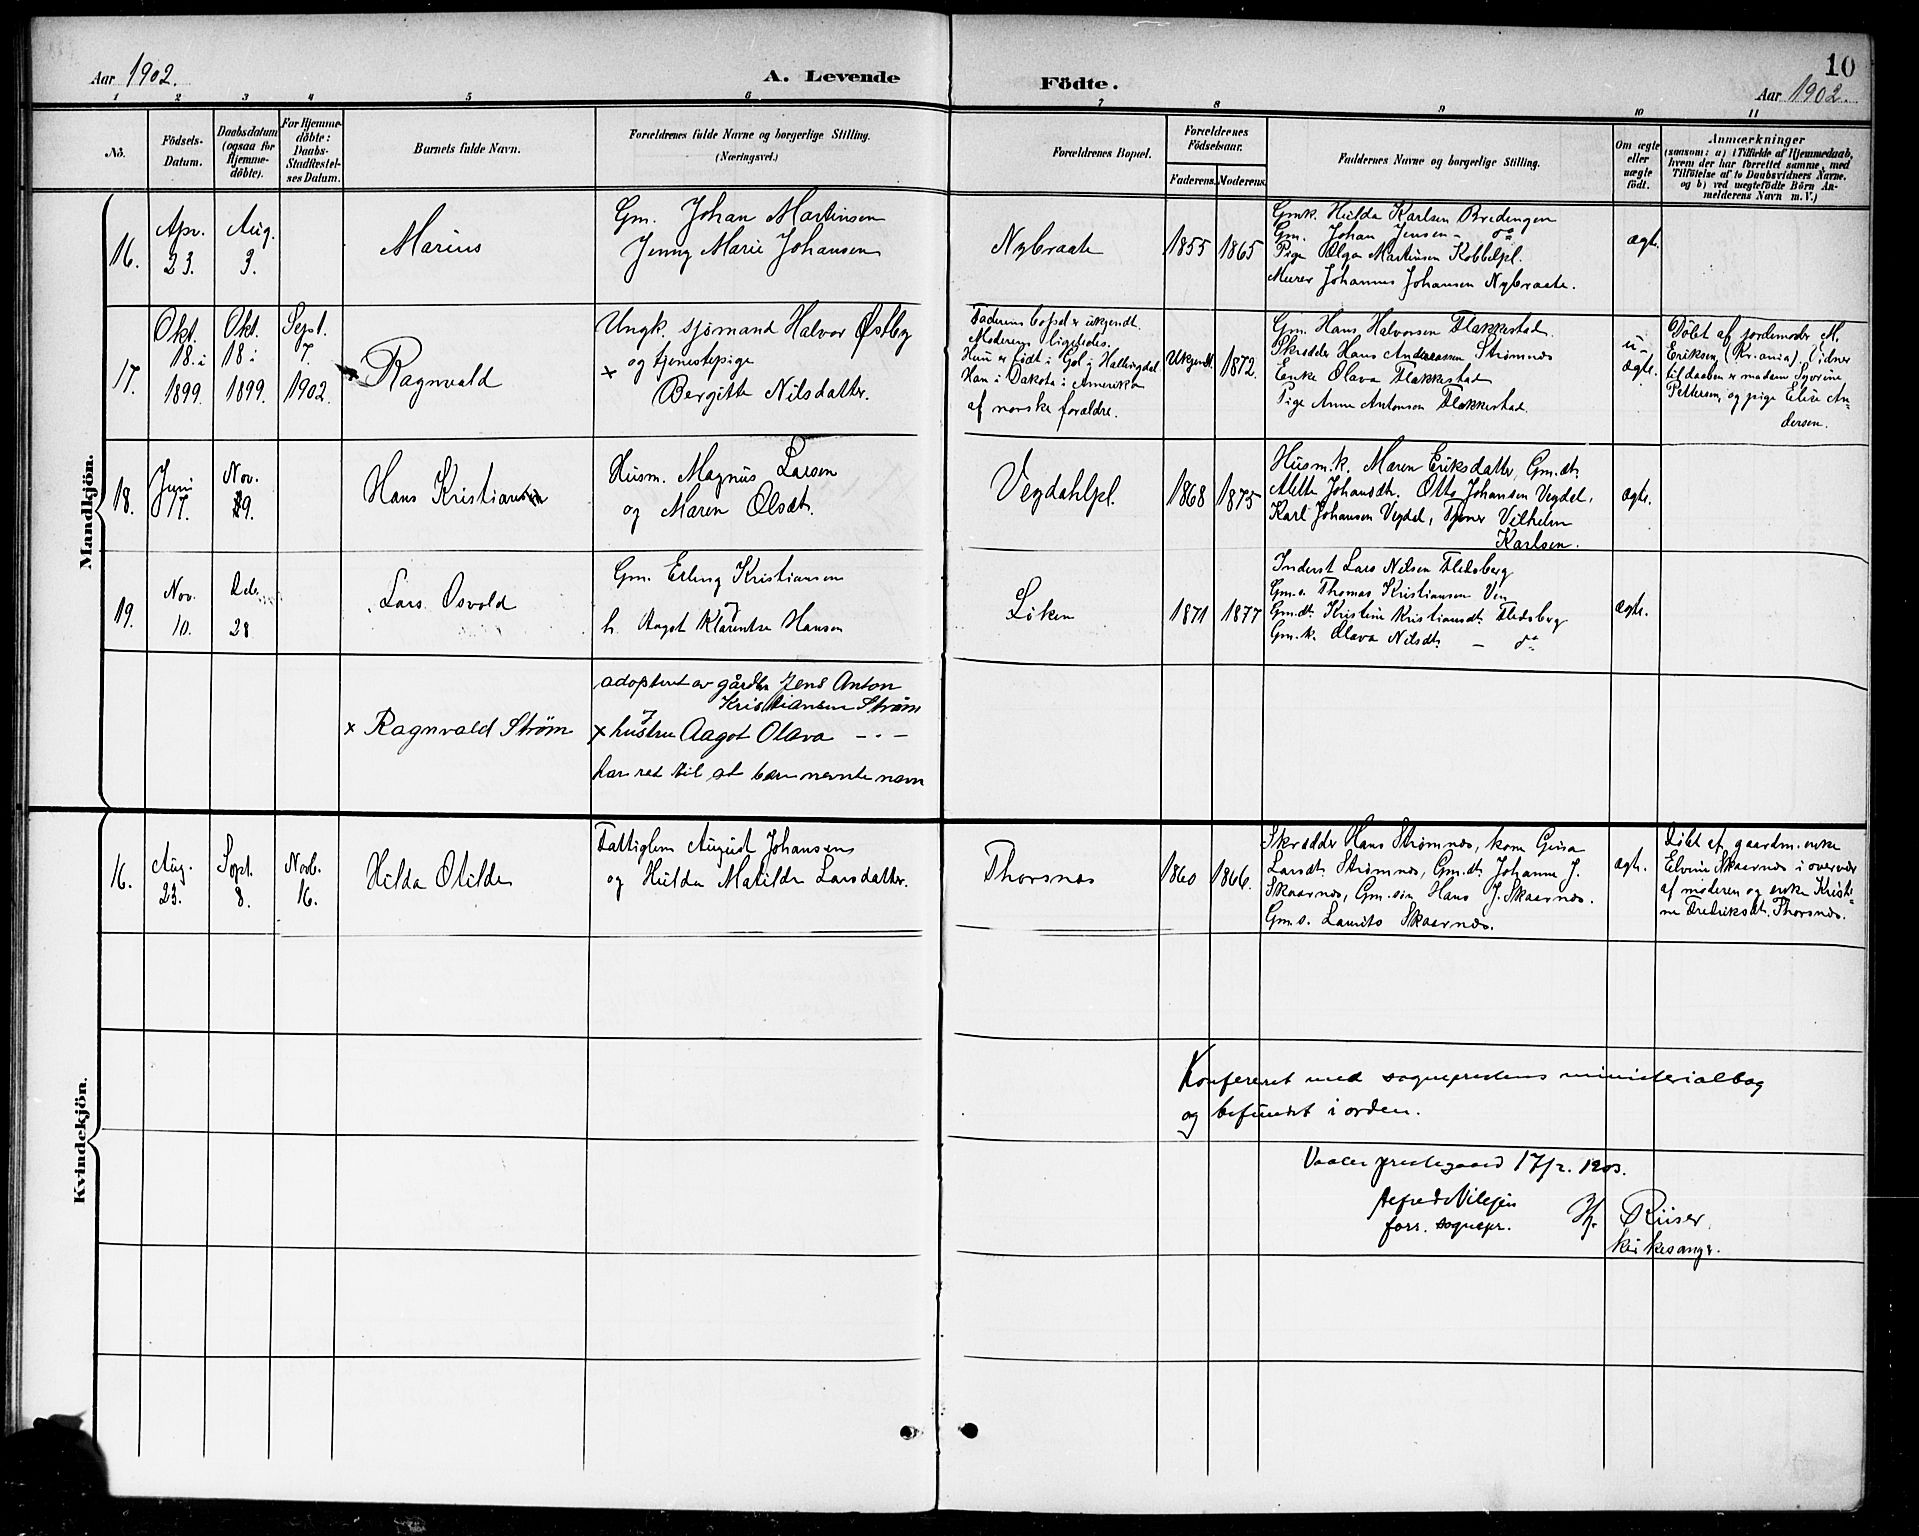 Aar 1902.
A. Levende
Födte.
10
Aar 1902.
1 2 3 4 5 6 7 8 9 10 11
Nô.
Födsels-
Datum.
Daabsdatum
(ogsaa for
Hjemme-
döbte).
For Hjemme-
döbte:
Daabs-
Stadfæstel-
ses Datum.
Barnets fulde Navn.
Forældrenes fulde Navne og borgerlige Stilling.
(Næringsvei.)
Forældrenes Bopæl.
Forældrenes
Födselsaar.
Faderens. Moderens.
Faddernes Navne og borgerlige Stilling.
Om ægte
eller
uægte
födt.
Anmærkninger
(saasom: a) i Tilfælde af Hjemmedaab,
hvem der har forrettet samme, med
Tilföielse af to Daabsvidners Navne,
og b) ved uægtefödte Börn An-
melderens Navn m. V.)
Mandkjön.
16.
Apr.
23.
Aug.
3.
Marius
Gm. Johan Martinsen
Jenny Marie Johansen
Nybraate
1855
1865
Gmk. Hulda Karlsen Bredengen
Gm. Johan Jensen - do
Pige Olga Martinsen Kobbelpl.
Murer Johannes Johansen Nybraate.
ægte.
17.
Okt.
18. i
1899.
Okt.
18 i
1899.
Sept.
7.
1902.
Ragnvald
Ungk. sjømand Halvor Østby
og tjenestepige
x
Bergitte Nilsdatter.
Faderens bopel er ukjendt.
Moderens ligeledes.
Hun er født i Gol i Hallingdal
Han i Dakota i Amerika
af norske forældre.
Ukjendt.
1872.
Gm. Hans Halvorsen Flakkestad.
Skrædder Hans Andreassen Strømnæs
Enke Olava Flakkestad
Pige Anne Antonsen Flakkestad.
u-
ægte.
Døbt af jordemoder M.
Eriksen, (Kr.ania). Vidner
til daaben er madam Syverine
Pettersen, og pige Elise An-
dersen.
18.
Juni
17.
Nov.
29.
Hans Kristian
Husm. Magnus Larsen
og Maren Olsdt.
Vegdahlpl.
1868
1875
Husm.k. Maren Eriksdatter, Gm.dt.
Alette Johansdt. Otto Johansen Vegdal,
Karl Johansen Vegdal, Tjener Vilhelm
Karlsen.
ægte.
19.
Nov.
10.
Dcb.
28
Lars Osvald
Gm. Erling Kristiansen
h. Aagot Klarentse Hansen
Løken
1871
1877
Inderst Lars Nilsen Fledsberg
Gm.s. Thomas Kristiansen Ven
Gm.dt. Kristine Kristiansdt. Fledsberg
Gm.k. Olava Nilsdt. - do
ægte.
x Ragnvald Strøm
adoptert av gårdbr Jens Anton
Kristiansen Strøm
x hustru Aagot Olava - " -
har ret til at bære nevnte navn
Kvindekjön.
16.
Aug.
23.
Sept.
8.
Novb.
16.
Hilda Otilde
Fattiglem August Johansens
og Hulda Matilde Larsdatter.
Thorsnæs
1860
1866.
Skrædder Hans Strømnæs, kone Gina
Larsdt. Strømnæs, Gm.dt. Johanne J.
Skaarnæs, Gm.søn Hans J. Skaarnæs.
Gm.s. Laurits Skaarnæs.
ægte.
Døbt af gaardm.enke
Elvine Skaarnæs i overvær
af moderen og enke Kristi-
ne Fredriksdt. Thorsnæs.
Konfereret med sogneprestens ministerialbog
og befundet i orden.
Vaaler prestegaard 17/2. 1903.
forr. sognepr.
Riiser
kirkesanger.